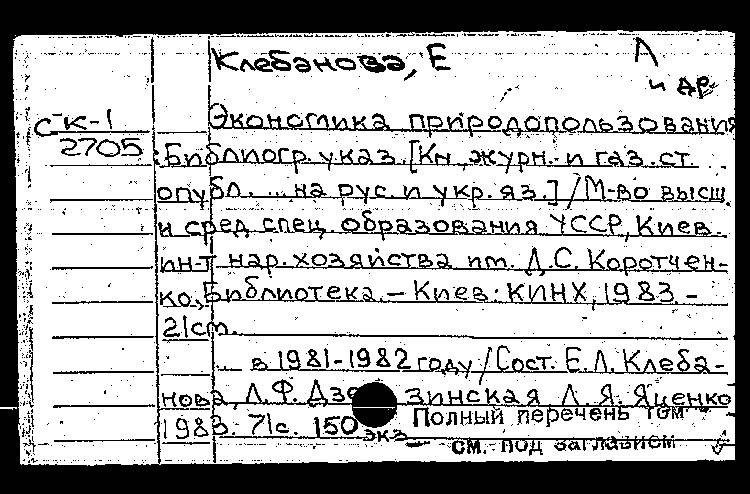 Клебанова, Е А
и др
СК-1
2705
Экономика природопользования
:Библиогр. указ. [Кн., журн. и газ. ст.
опубл. ... на рус. и укр. яз.] / М-во высш.
и сред. спец. образования УССР, Киев.
ин-т нар. хозяйства им. Д.С. Коротчен-
ко, Библиотека. - Киев: КИНХ, 1983. -
21 см.
... в 1981-1982 году / Сост. Е.Л. Клеба-
нова, Л.Ф. зинская, Л.Я. Яценко
1983. 71с. 150 экз
Полный перечень том
см. под заглавием